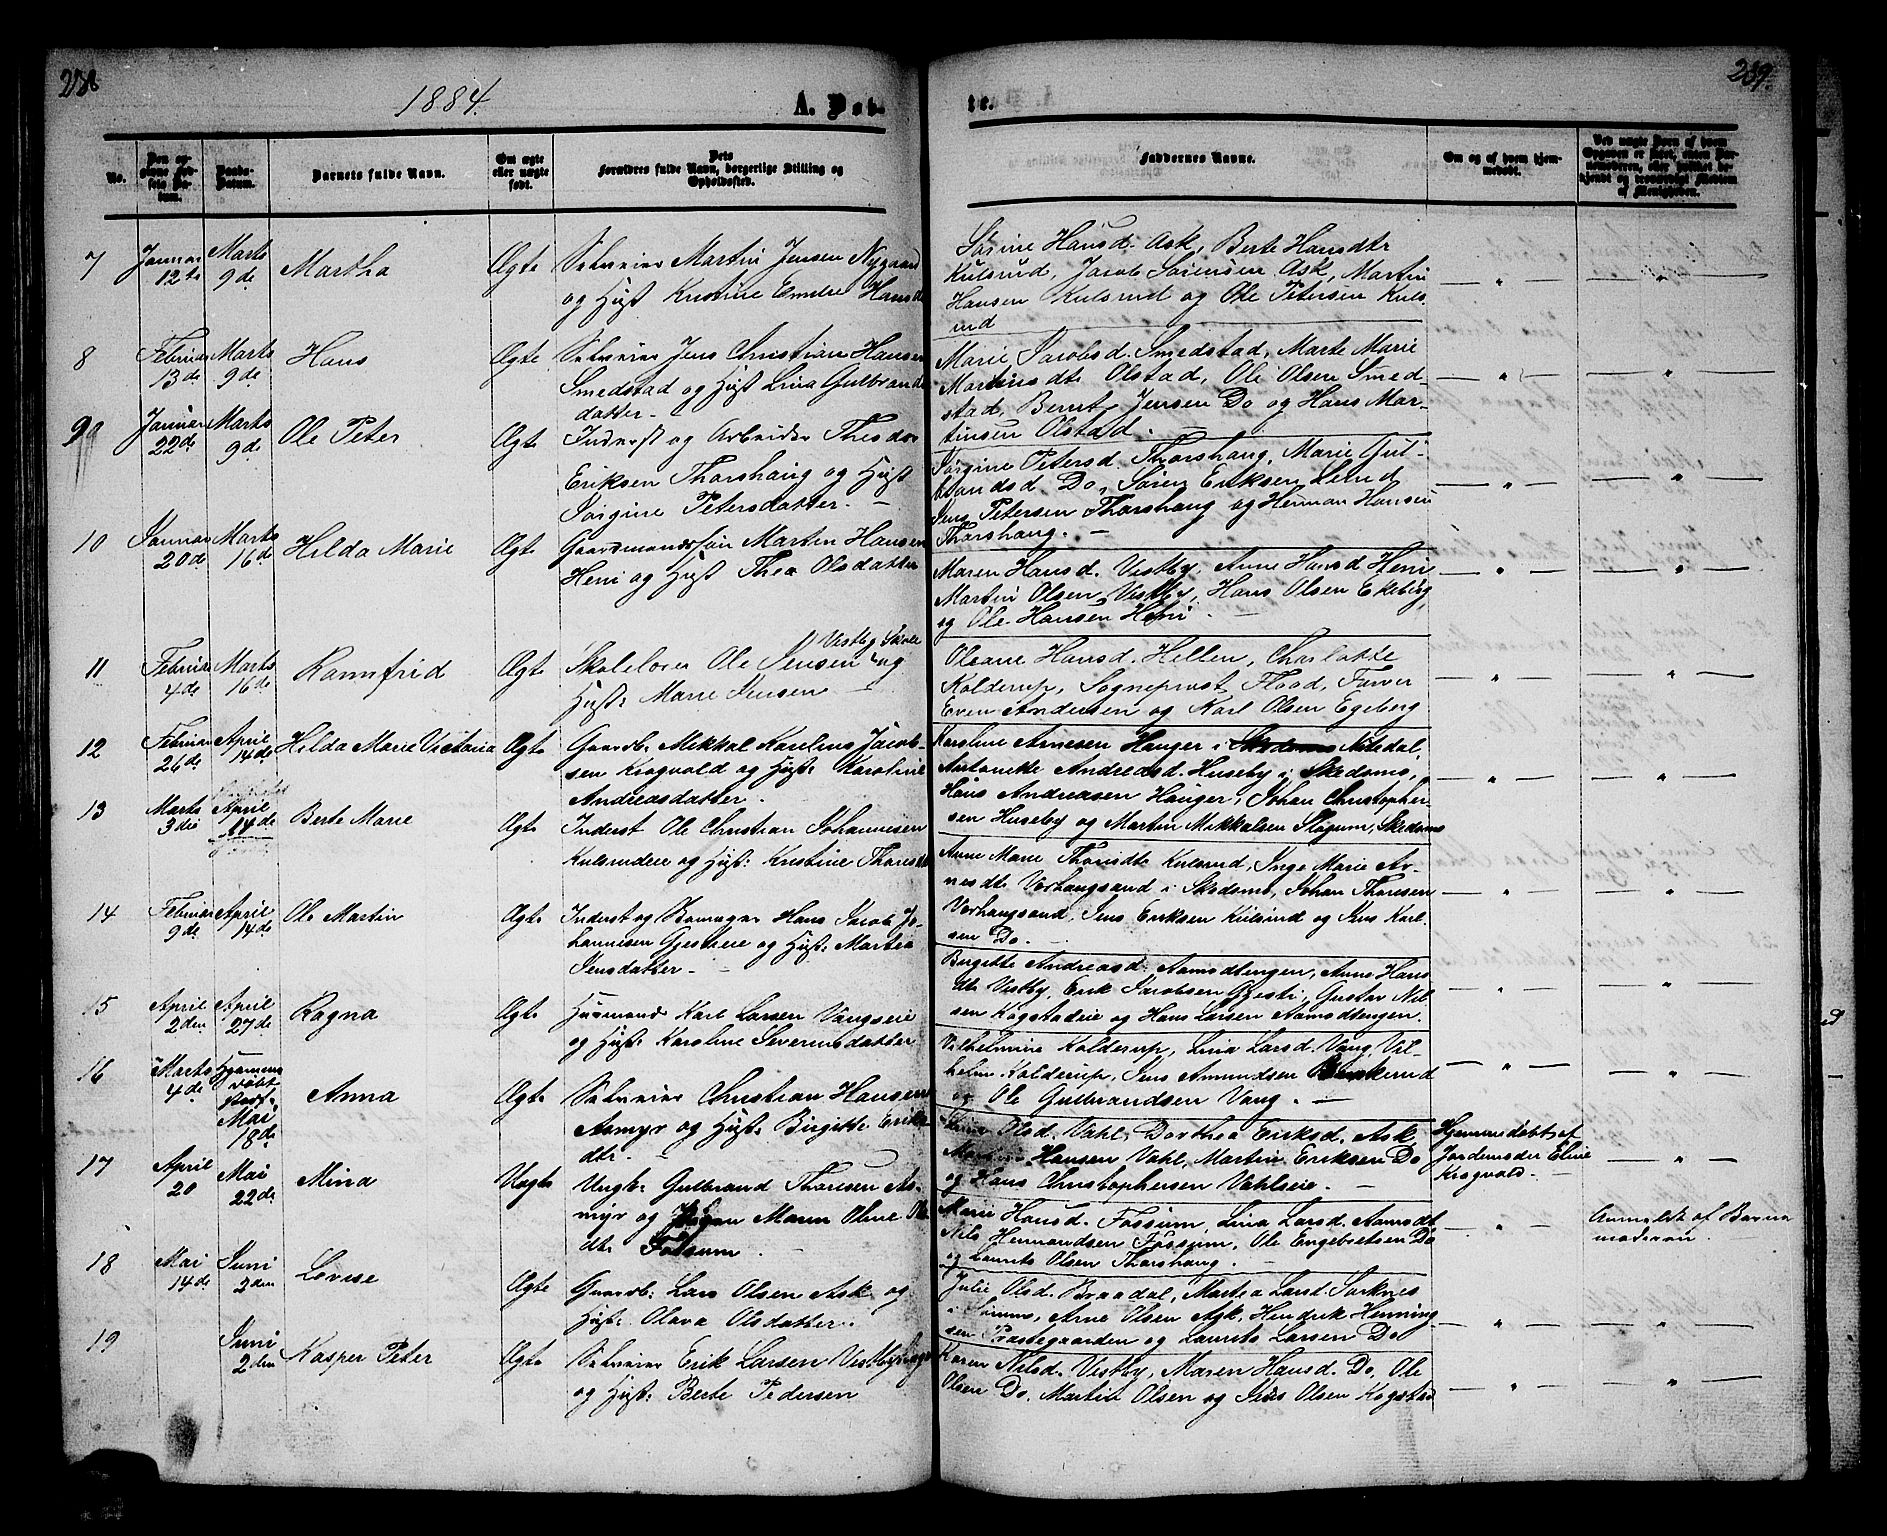 288
1884.
A. Døb-
te.
289.
No.
Barnets fulde Navn.
Om ægte eller uægte født.
Dets Forældres fulde Navn, borgerlige Stilling og Opholdssted.
Faddernes Navne.
Om og af hvem hjemmedøbt.
7
Januar 12te
Marts 9de
Martha
Ægte
Selveier Martin Jensen Nygaard
og Hust Kristine Emelie Hansd
Sørine Hansd. Ask, Berte Hansdtr
Kulsrud, Jacob Sørensen Ask, Martin
Hansen Kulsrud og Ole Petersen Kuls
rud
8
Februar 13de
Marts 9de
Hans
Ægte
Selveier Jens Christian Hansen
Smedstad og Hust Lina Gulbrands
datter
Marie Jacobsd. Smedstad, Marte Marie
Martinsdtr Olstad, Ole Olsen Smed-
stad, Bernt Jensen Do og Hans Mar-
tinsen Olstad.
9
Januar 22de
Marts 9de
Ole Peter
Ægte
Inderst og Arbeider Theodor
Eriksen Thorshaug og Hust
Jørgine Petersdatter.
Jørgine Petersd. Thorshaug, Marie Gul-
brandsd Do, Søren Eriksen Lund
Jens Petersen Thorshaug og Herman Hansen
Thorshaug.
10
Januar 20de
Marts 16de
Hilda Marie
Ægte
Gaardmandssøn Martin Hansen
Heni og Hust Thea Olsdatter
Maren Hansd. Vestby, Anne Hansd Heni
Martin Olsen Vestby, Hans Olsen Ekeberg,
og Ole Hansen Heni.
11
Februar 4de
Marts 16de
Rannfrid
Ægte
Skolelærer Ole Jensen Vestby Skole og
Hust: Marie Jensen
Oleane Hansd. Hellen, Charlotte
Kolderup, Sogneprest Flood, Farver
Even Andersen og Karl Olsen Egeberg
12
Februar 26de
April 14de
Hilda Marie Victoria
Ægte
Gaardb. Mikkal Karelius Jacob-
sen Krogvold og Hust: Karoline
Andreasdatter.
Karoline Arnesen Hauger i Nitedal,
Antonette Andreasd. Huseby i Skedsmo,
Hans Andreasen Hauger, Johan Christopher-
sen Huseby og Martin Mikkalsen Skedsmo
13
Marts 3die
April 14de
Berte Marie
Ægte
Inderst Ole Christian Johannesen
Kulsrudeie og Hust: Kristine Thoresd
Anne Marie Thorsdtr Kulsrud, Inge Marie Ar-
nesdtr Vorhaugsand i Skedsmo, Johan Thoresen
Vorhaugsand, Jens Eriksen Kulsrud og Jens Karl-
sen Do.
14
Februar 9de
April 14de
Ole Martin
Ægte
Inderst og Hans Jacob Jo-
hannesen Gjestieie og Hust: Martea
Jensdatter
Birgitte Andreasd. Aamodtengen, Anne Hans
dtr Vestby, Erik Jacobsen Gjesti, Gustav Nil-
sen Kogstadeie og Hans Larsen Aamodtengen.
15
April 2den
April 27de
Ragna
Ægte
Husmand Karl Larsen Vangseie
og Hust: Karoline Severinsdatter
Vilhelmine Kolderup, Lina Larsd. Vang, Vil-
helm Kolderup, Jens Amundsen
og Ole Gulbrandsen Vang.
16
Marts 4de
Hjemmedøbt Mai 18de
Anna
Ægte
Selveier Christian Hansen
Aamyr og Hust: Birgitte Eriks
dtr.
Olsd. Vahl, Dorthea Eriksd. Ask,
Hansen Vahl, Martin Eriksen Do
og Hans Christophersen Vahlseie.
Hjemmedøbt af
Jordemoder Eline
Krogvold.
17
April 20
Mai 22de
Mina
Uægte
Ungk: Gulbrand Thoresen Aa-
myr og Maren Oline Ols
dtr Fossum
Marie Hansd. Fossum, Lina Larsd. Aamodt
Nils Hermandsen Fossum, Ole Engebretsen Do
og Laurits Olsen Thorshaug.
Anmeldt af Barne
moderen.
18
Mai 14de
Juni 2den
Lovise
Ægte
Gaardb: Lars Olsen Ask og
Hust: Olava Olsdatter.
Julie Olsd. Braadal, Martea Larsd.
Arne Olsen Ask, Hendrik Henning-
sen Præstegaarden og Laurits Larsen Do
19
Juni 2den
Kasper Peter
Ægte
Selveier Erik Larsen
og Hust: Berte Pedersen
Karen Nilsd. Vestby, Maren Hansd. Do, Ole
Olsen Do, Martin Olsen og Jens Olsen Kogstad